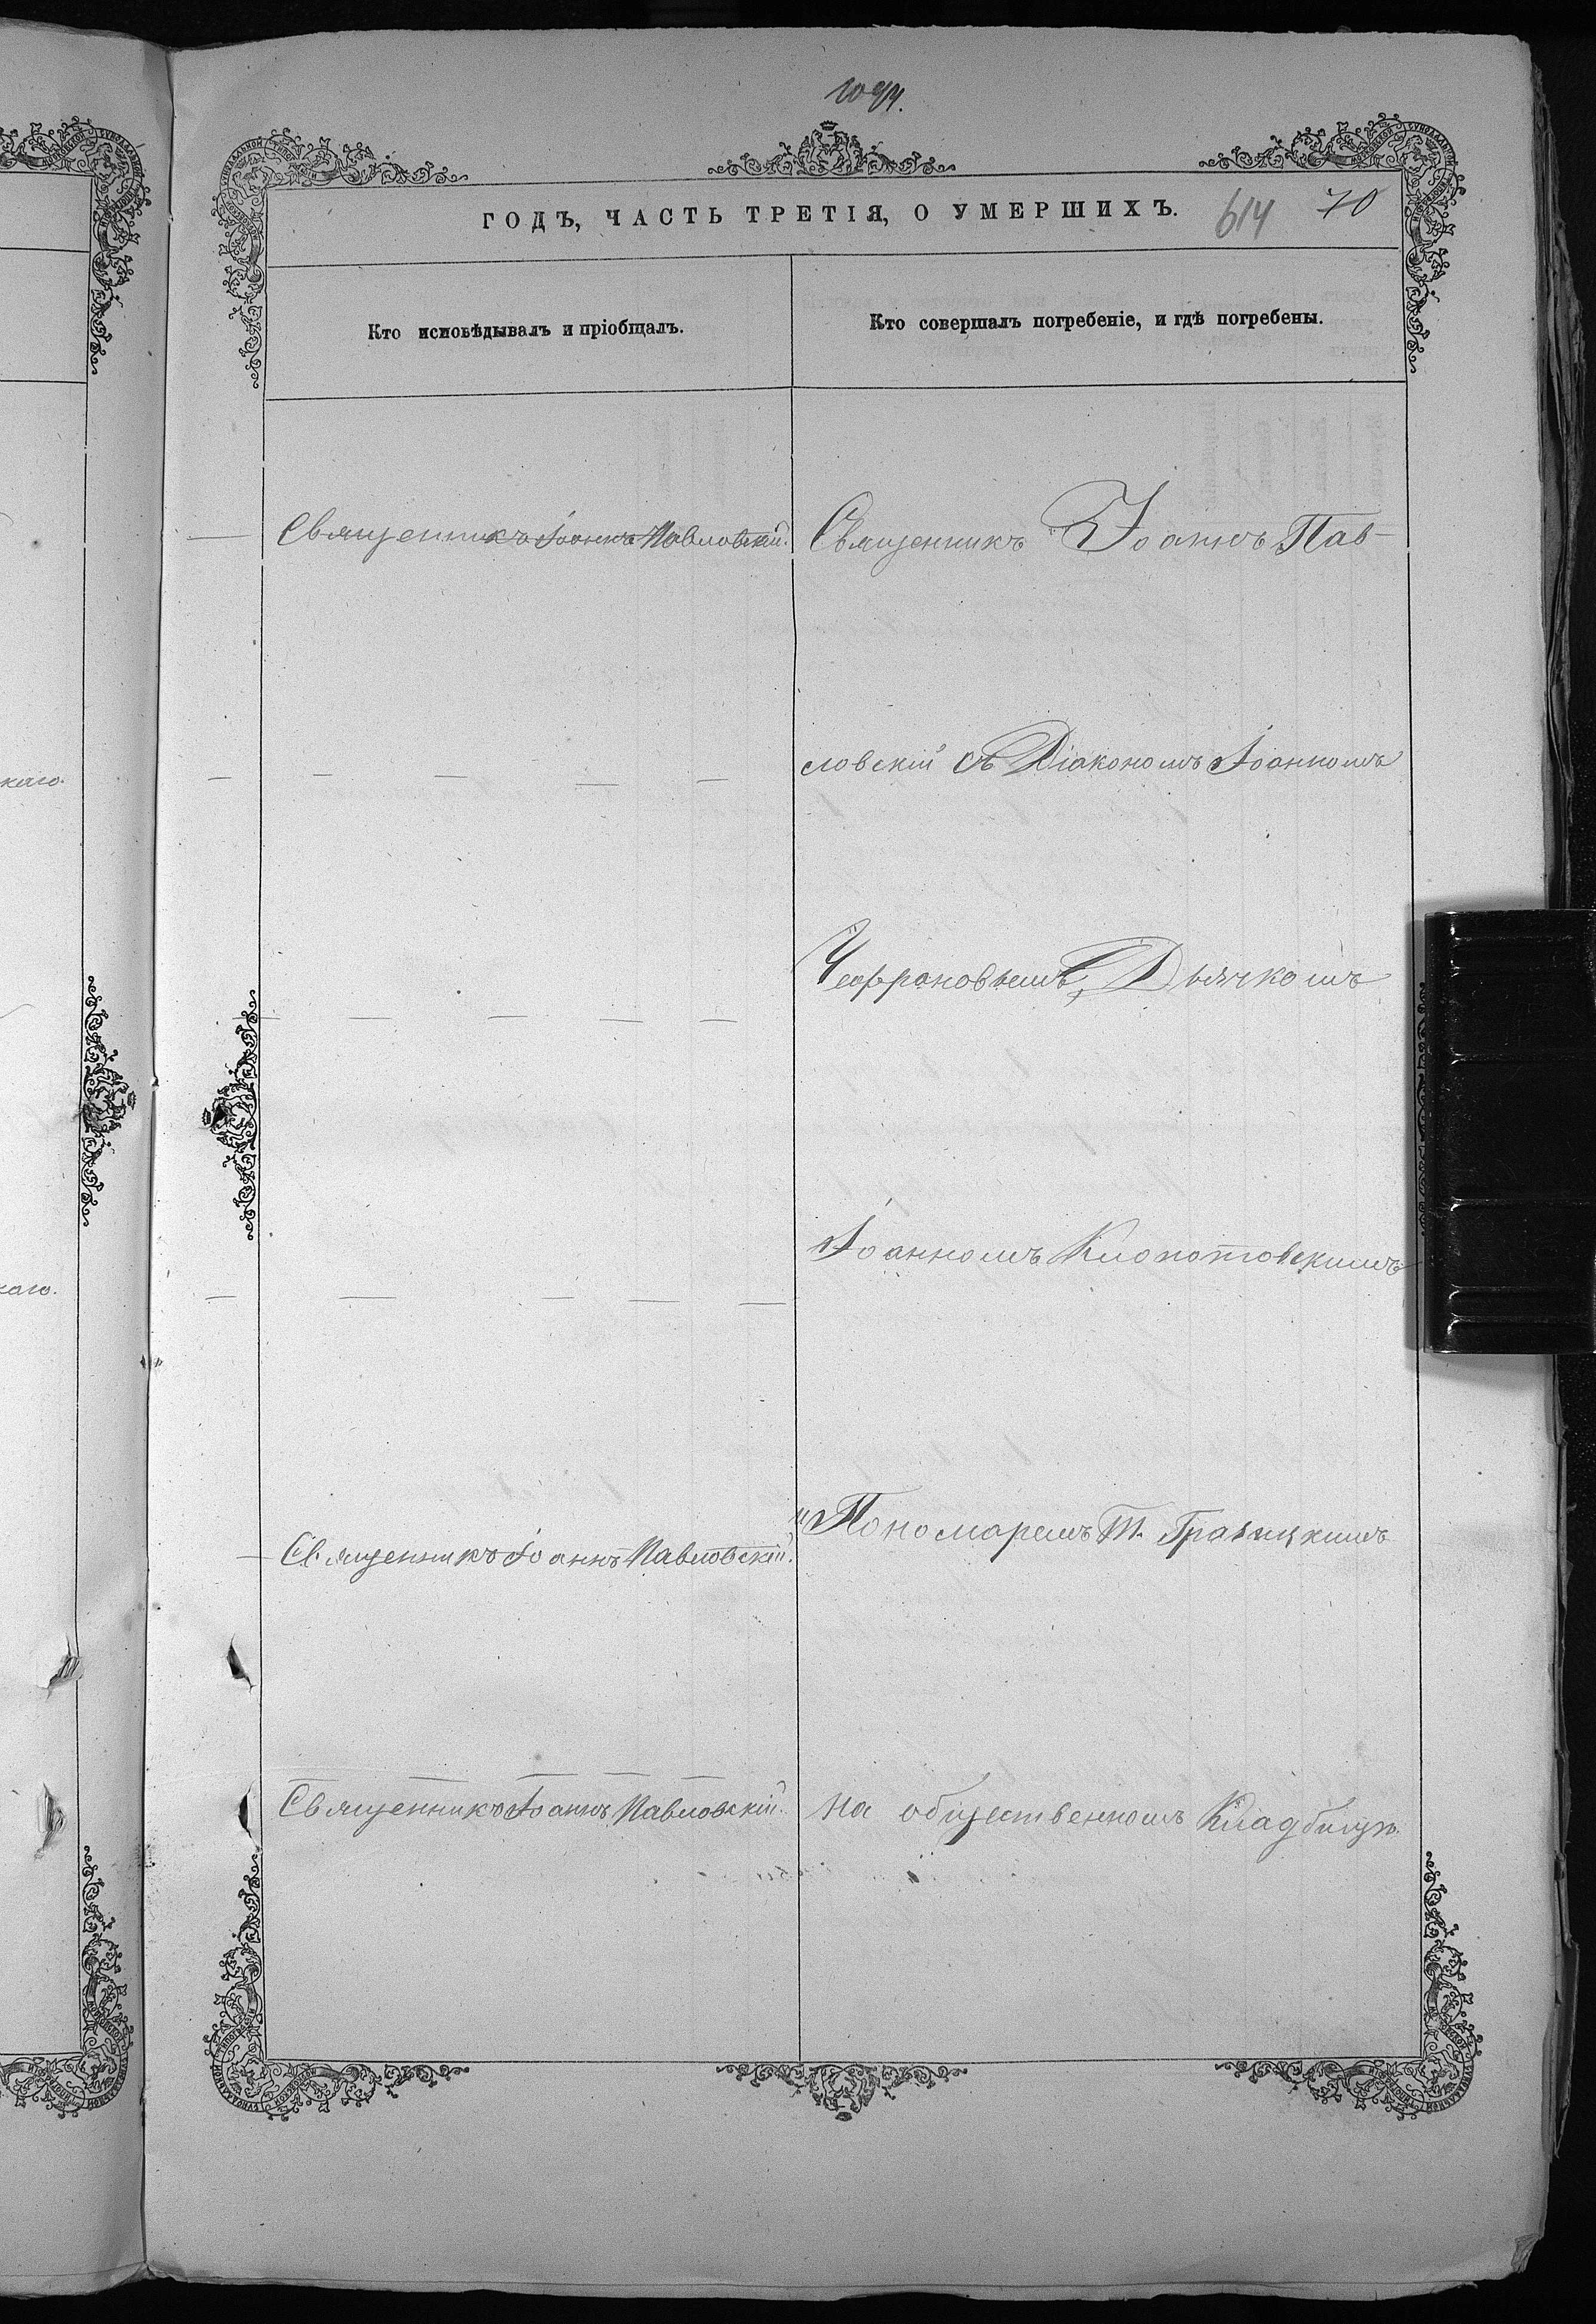 ГОДЪ, ЧАСТЬ ТРЕТІЯ, О УМЕРШИХЪ. 614 70
Кто исповѣдывалъ и пріобщалъ.
Кто совершалъ погребеніе, и гдѣ погребены.
Священникъ Іоаннъ Павловскій.
Священникъ Іоаннъ Пав-
каго.
ловскій съ Діакономъ Іоанномъ
Чефрановымъ, Дьячкомъ
Іоанномъ Клопотовскимъ
каго.
и Пономаремъ Т. Гравицкимъ
Священникъ Іоаннъ Павловскій.
Священникъ Іоаннъ Павловскій.
на общественномъ Кладбищѣ.